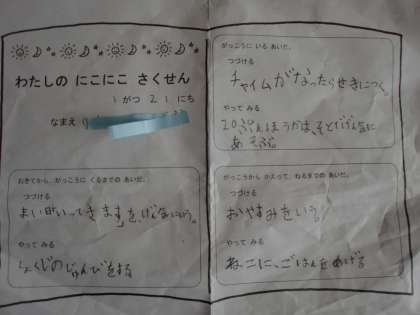 わたしの にこにこ さくせん
1がつ 21にち
なまえ
おきてから、がっこうに くるまでの あいだ。
つづける
まい日「いってきます」をげん気にいう。
やって みる
しょくじのじゅんびをする
がっこうに いる あいだ。
つづける
チャイムがなったらせきにつく。
やって みる
20ぷんほうかは、そとでげん気に
あそぶ。
がっこうから かえって、ねるまでの あいだ。
つづける
おやすみをいう。
やって みる
ねこに、ごはんをあげる